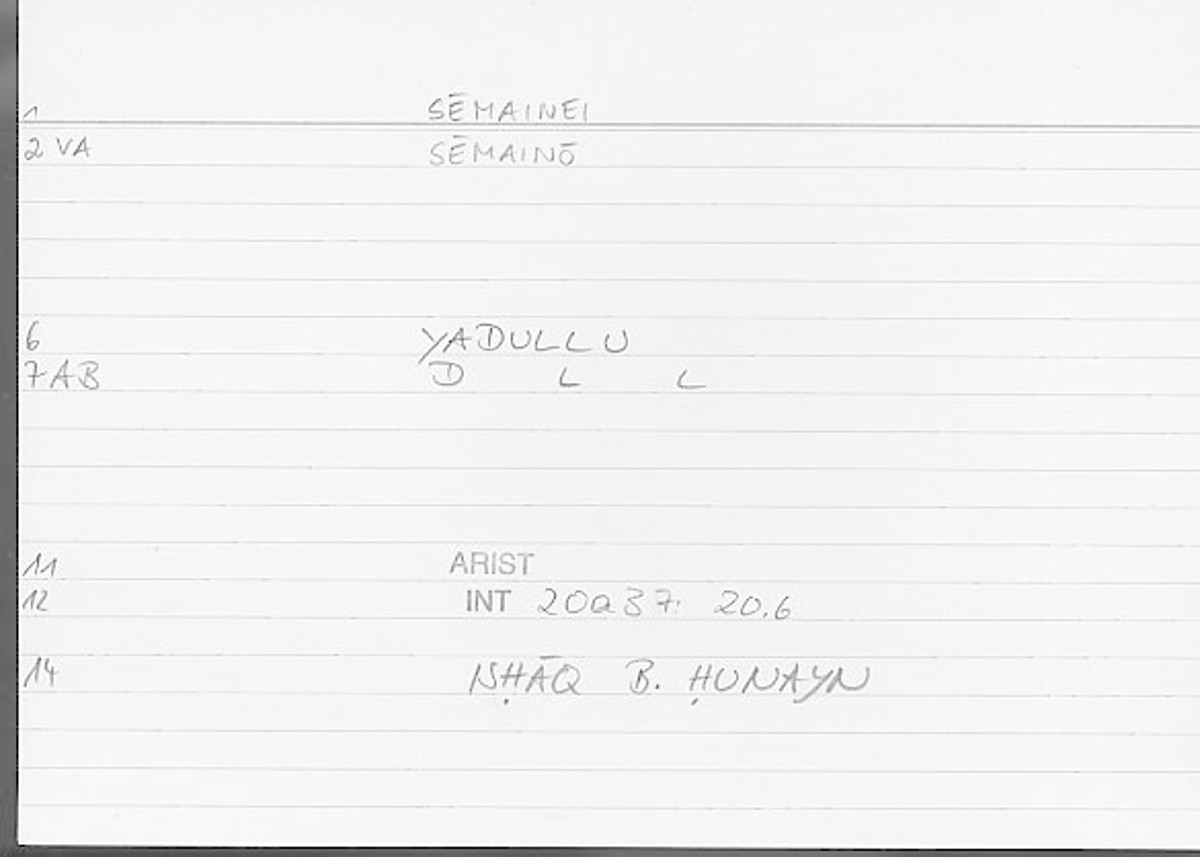 1 SĒMAINEI
2 VA SĒMAINŌ
6 YADULLU
7 AB D L L
11 ARIST
12 INT 20a37. 20.6
14 ISḤĀQ B. ḤUNAYN